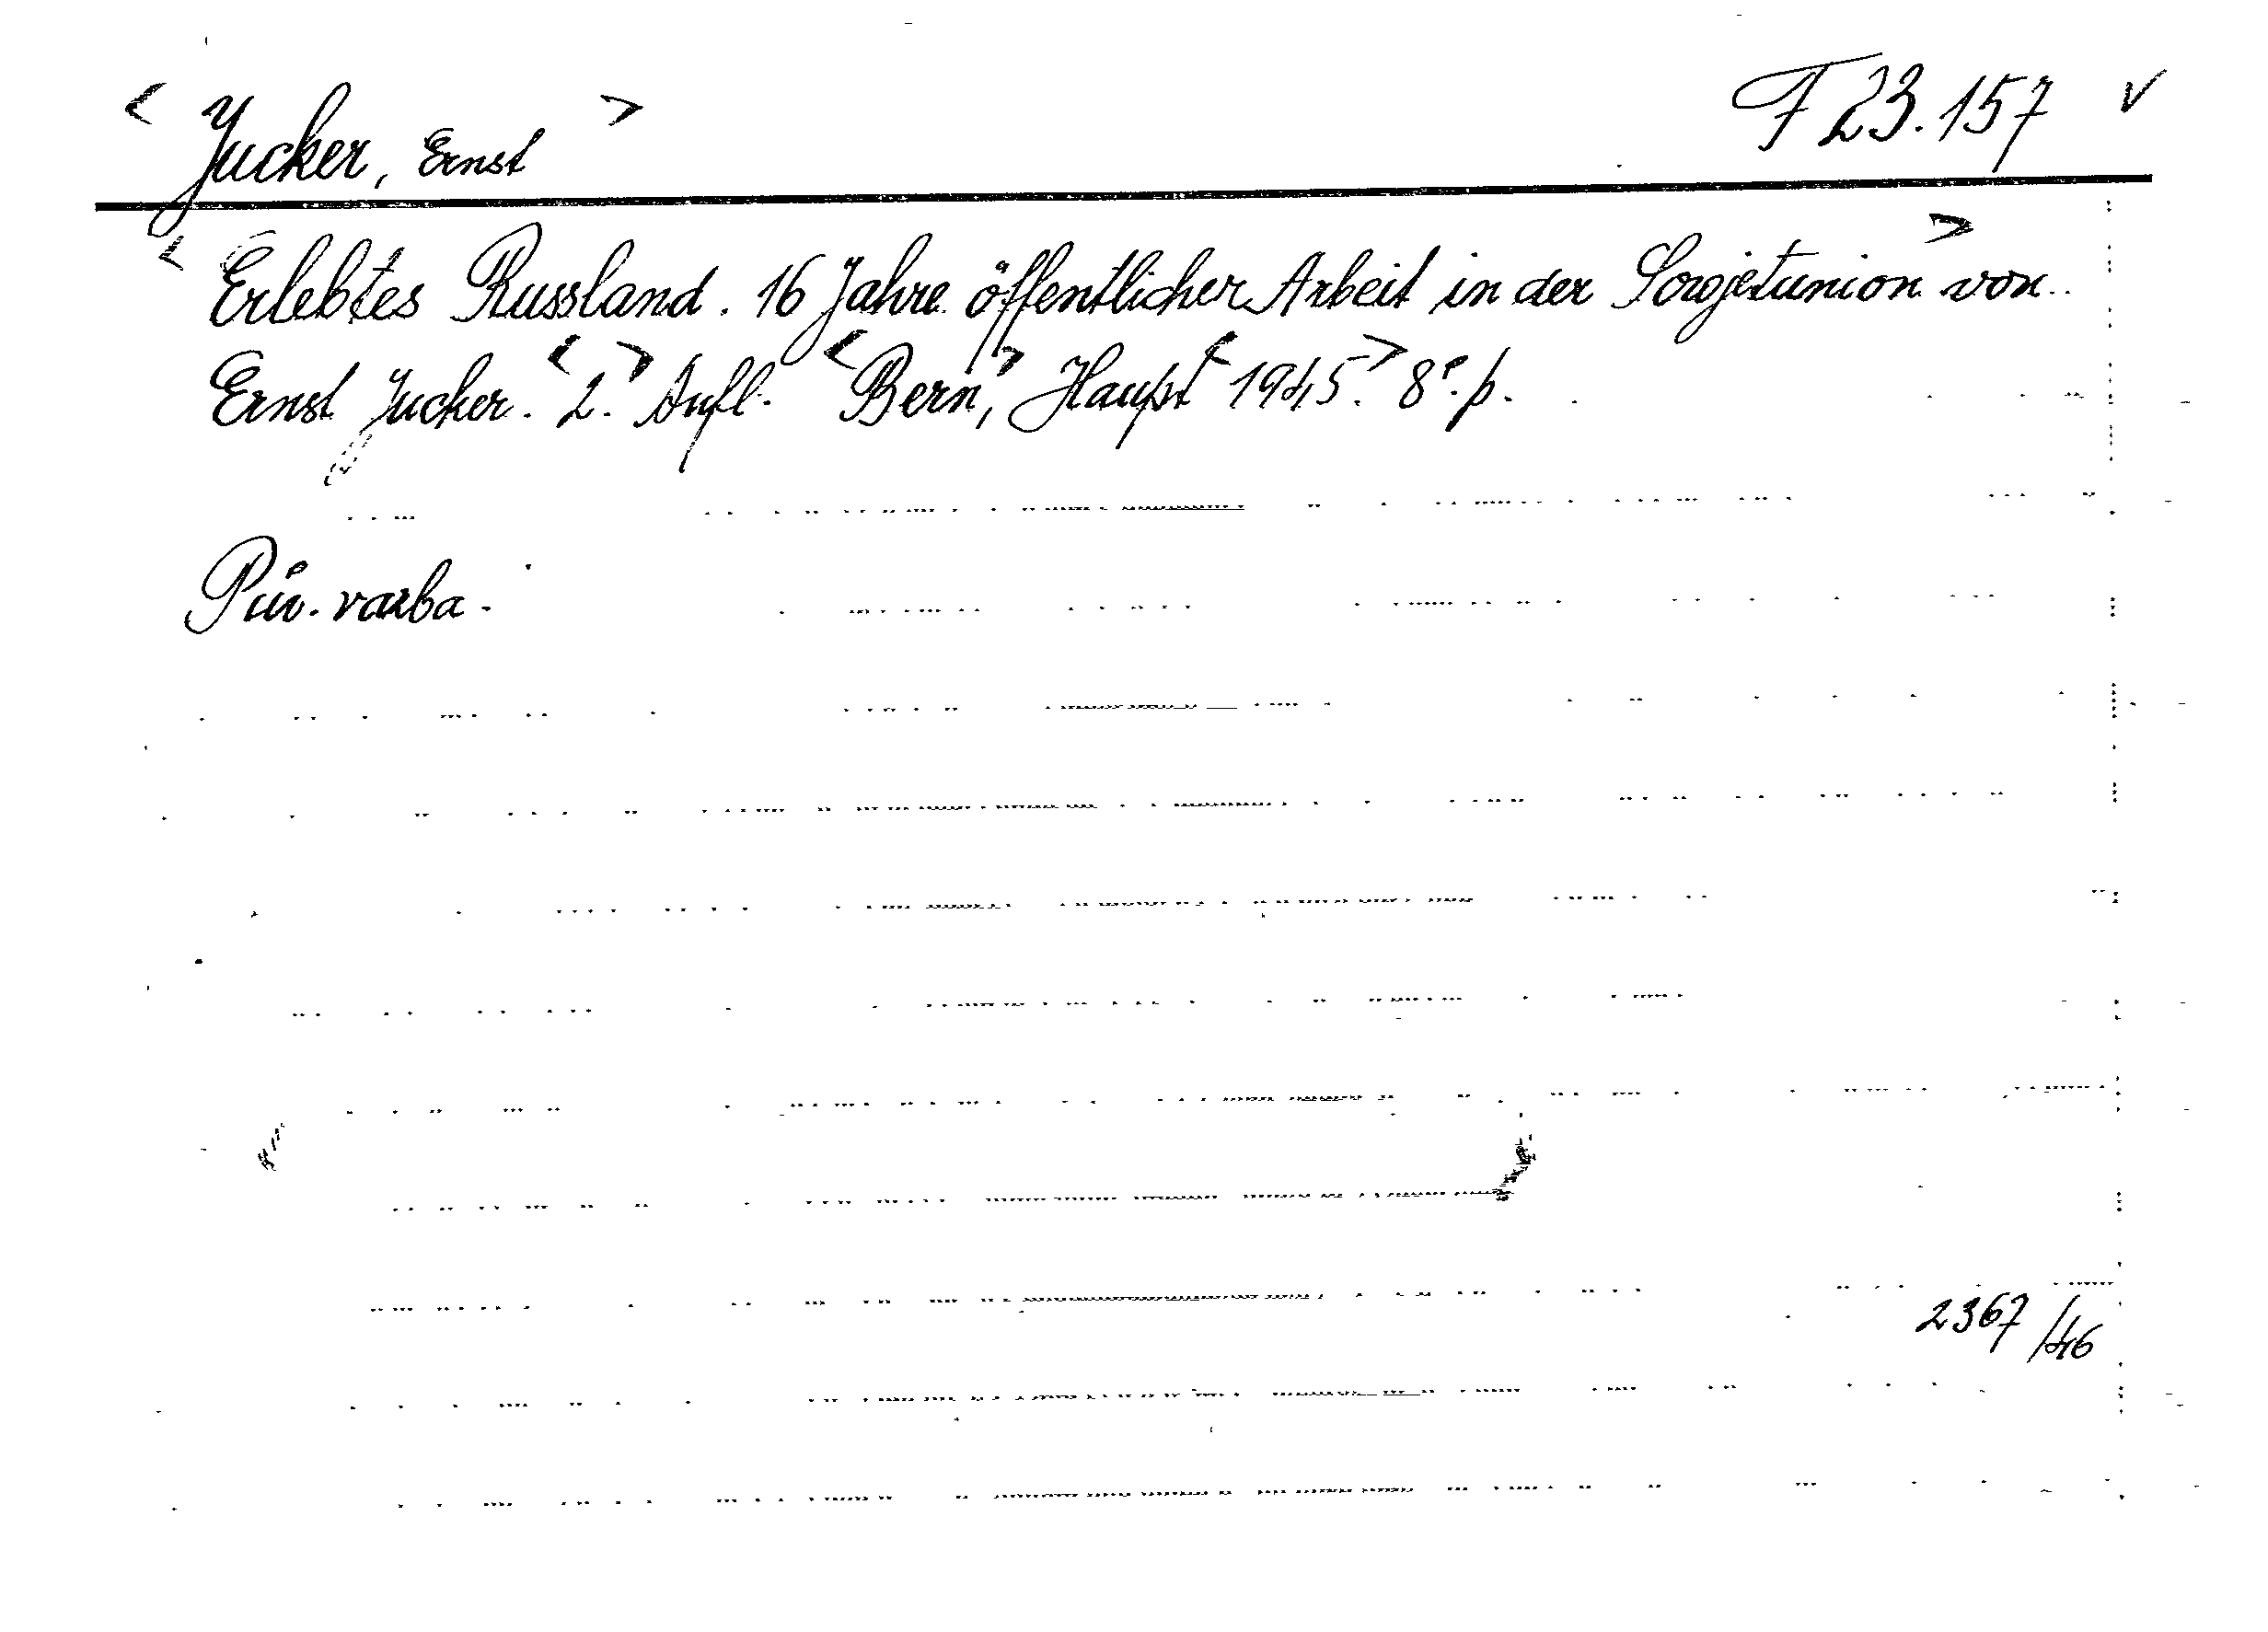 < Jucker, Ernst > F 23.157 ✓
< Erlebtes Russland. 16 Jahre öffentlicher Arbeit in der Sowjetunion > von
Ernst Jucker. < 2. > Aufl. < Bern, > Haupt < 1945. > 8°. p.
Pův. vazba.
2367/46